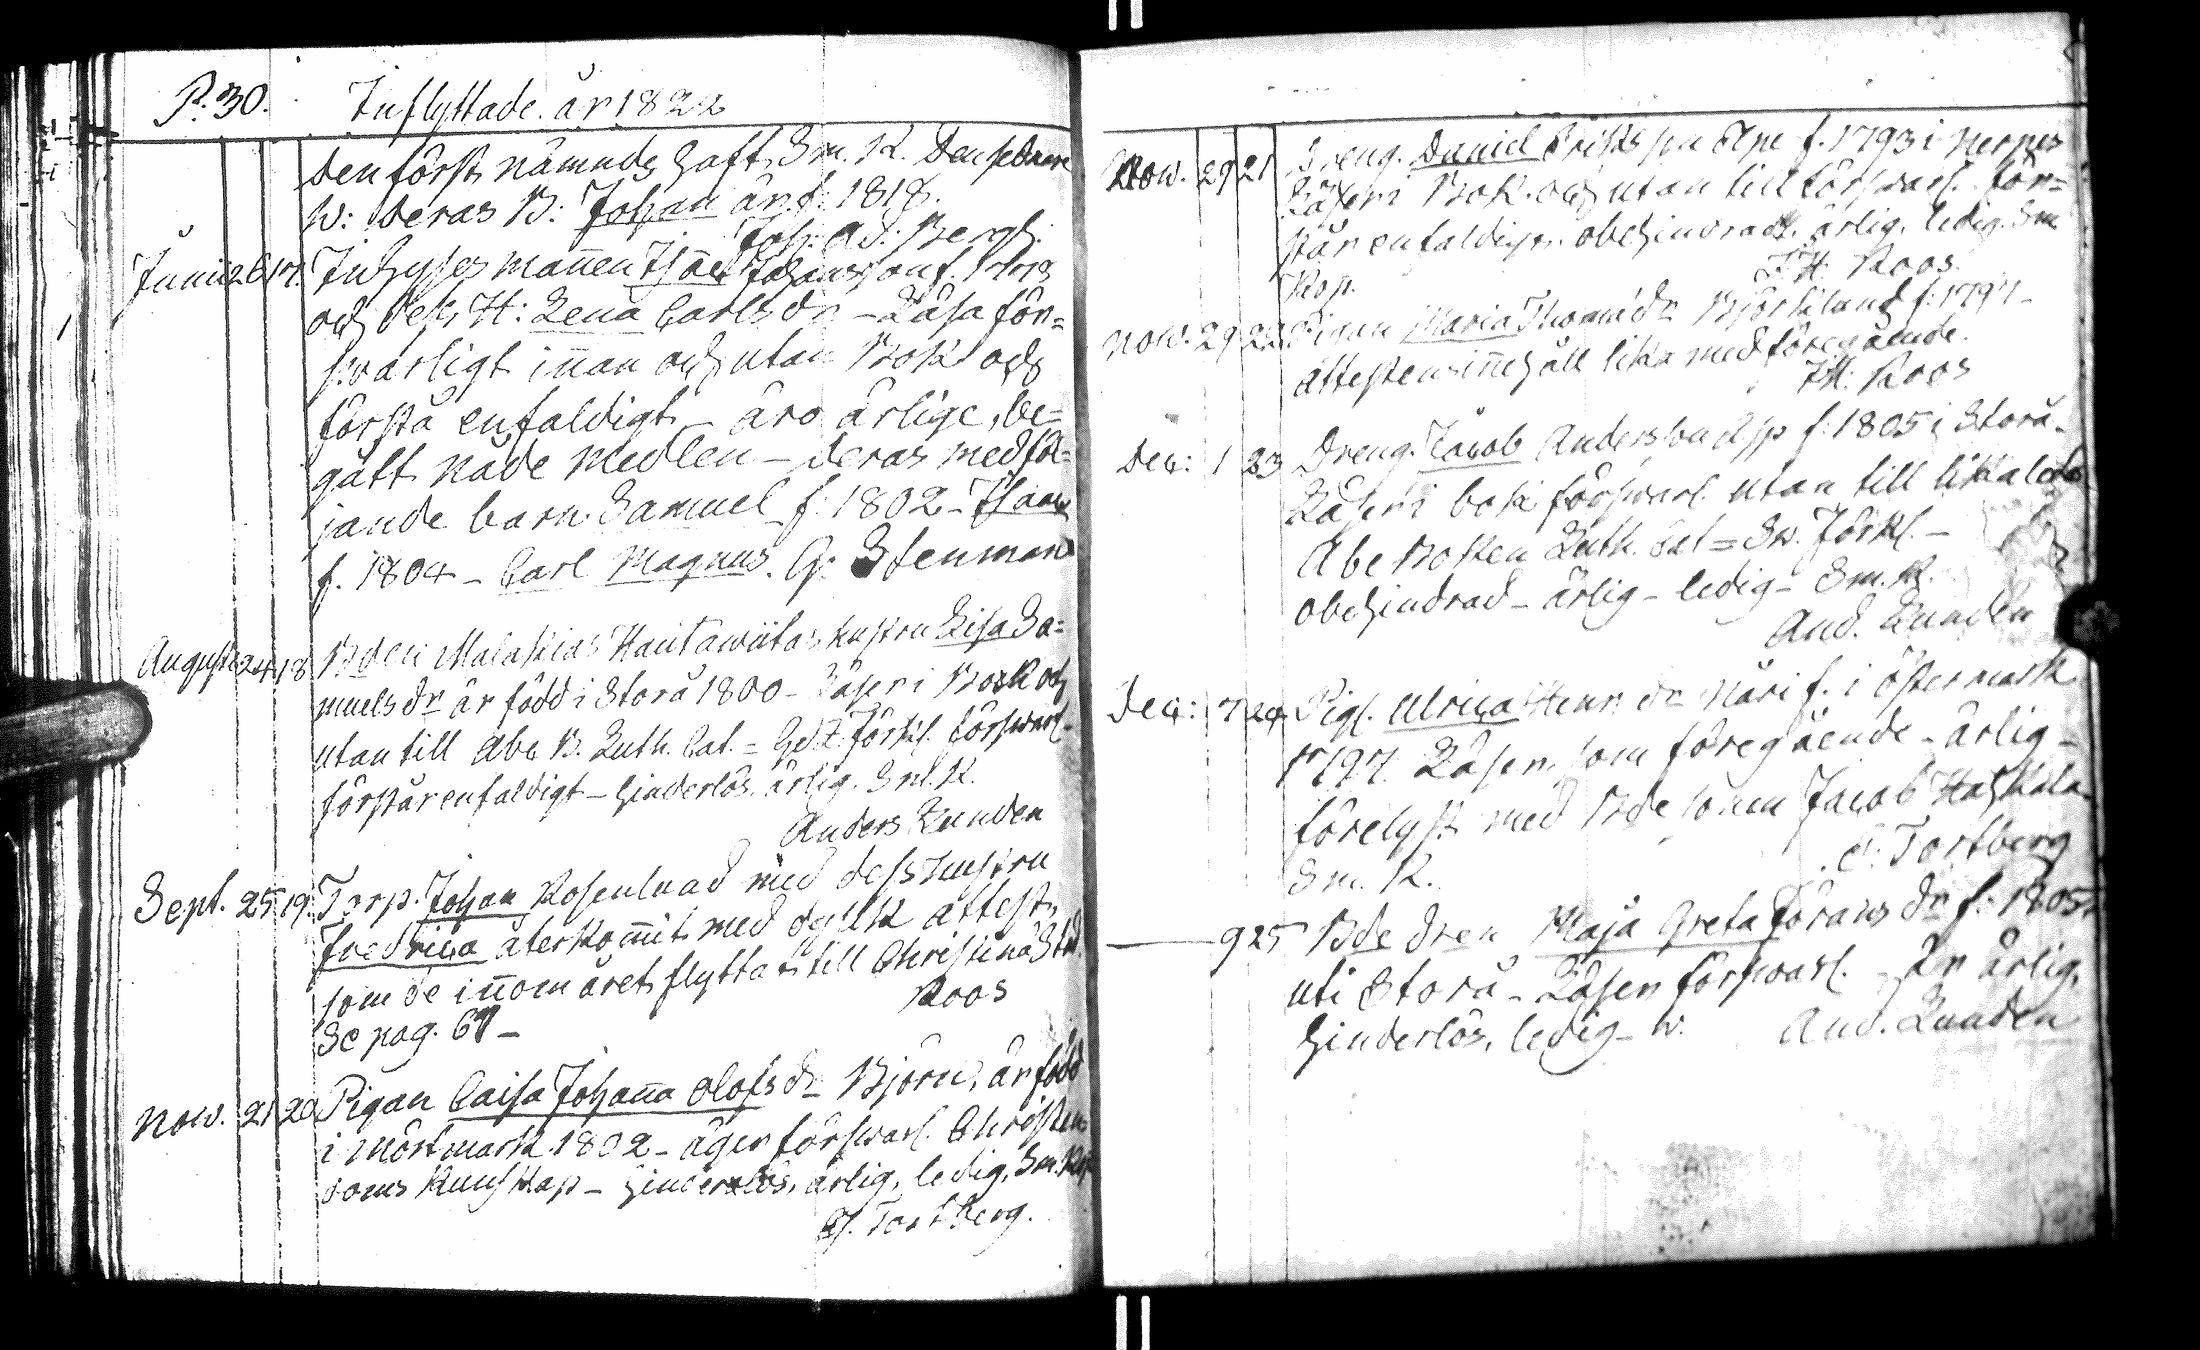 P. 30. Inflyttade. år 1822
den först nämnde haft Sm. K. den sednare
w: deras B: Johan är f. 1818.
Joh: Ad: Bergh.
Juni 26 17. Inhyses mannen Isac Johansson f.
och dess H: Lena Carls dr - Läsa för=
svarligt innan och utan Bok och
förstå enfaldigt - äro ärlige, be=
gått nåde medlen - deras medföl=
jande barn Samuel f. 1802 - Isaac
f. 1804 - Carl Magnus. G: Stenman
Augusti 24 18 Bden Malakias Hautawiitas hustru Lisa Sa=
muels dr är född i Storå 1800 - Läser i Bok och
utan till Abc B. Luth. Cat. = Förkl. försvarl.
förstår enfaldigt - hinderlös, ärlig. Sm. K.
Anders Lunden
Sept. 25 19. Torp. Johan Rosenlad med dess hustru
Fredrica återkommit med attest,
som de innom året flyttat till Christinæ Stad.
Roos
Se pag. 67 -
Now. 21 20 Pigan Caisa Johanna Olofs dr Björn, är född
i Mörtmark 1802 - äger försvarl. Christen
doms Kunskap - hinderslös, ärlig, ledig, Sm. Kop
Tortberg.
Now. 29 21 Dreng. Daniel Eriks son f. 1793 i Nerpes
Läser i Bok och utan till försvarl. för=
står enfaldigt. obehindrad. ärlig, ledig. Sm
Kop. Roos.
Now. 29 22 Pigan Maria Thomæ dr Björklund f. 1797 -
attestens innehåll lika med föregående.
Roos
Dec: 1 23 Dreng. Jacob Anders son f. 1805 i Storå.
Läser i bok försvarl. utan till likaledes
Abc Boken Luth. Cat = Sv. Förkl. -
obehindrad - ärlig - ledig - Sm. K.
And. Lunden
Dec: 7 24 Pig. Ulrica Henr. dr Näri f. i Östermark
1797. Läser som föregående - ärlig -
förelyst med Bde sonen Jacob
Sm. K. Tortberg
- 9 25 Bde dren Maja Greta Görans dr f. 1805
uti Storå - Läser försvarl. - är ärlig,
hinderlös, ledig - w. And. Lunden